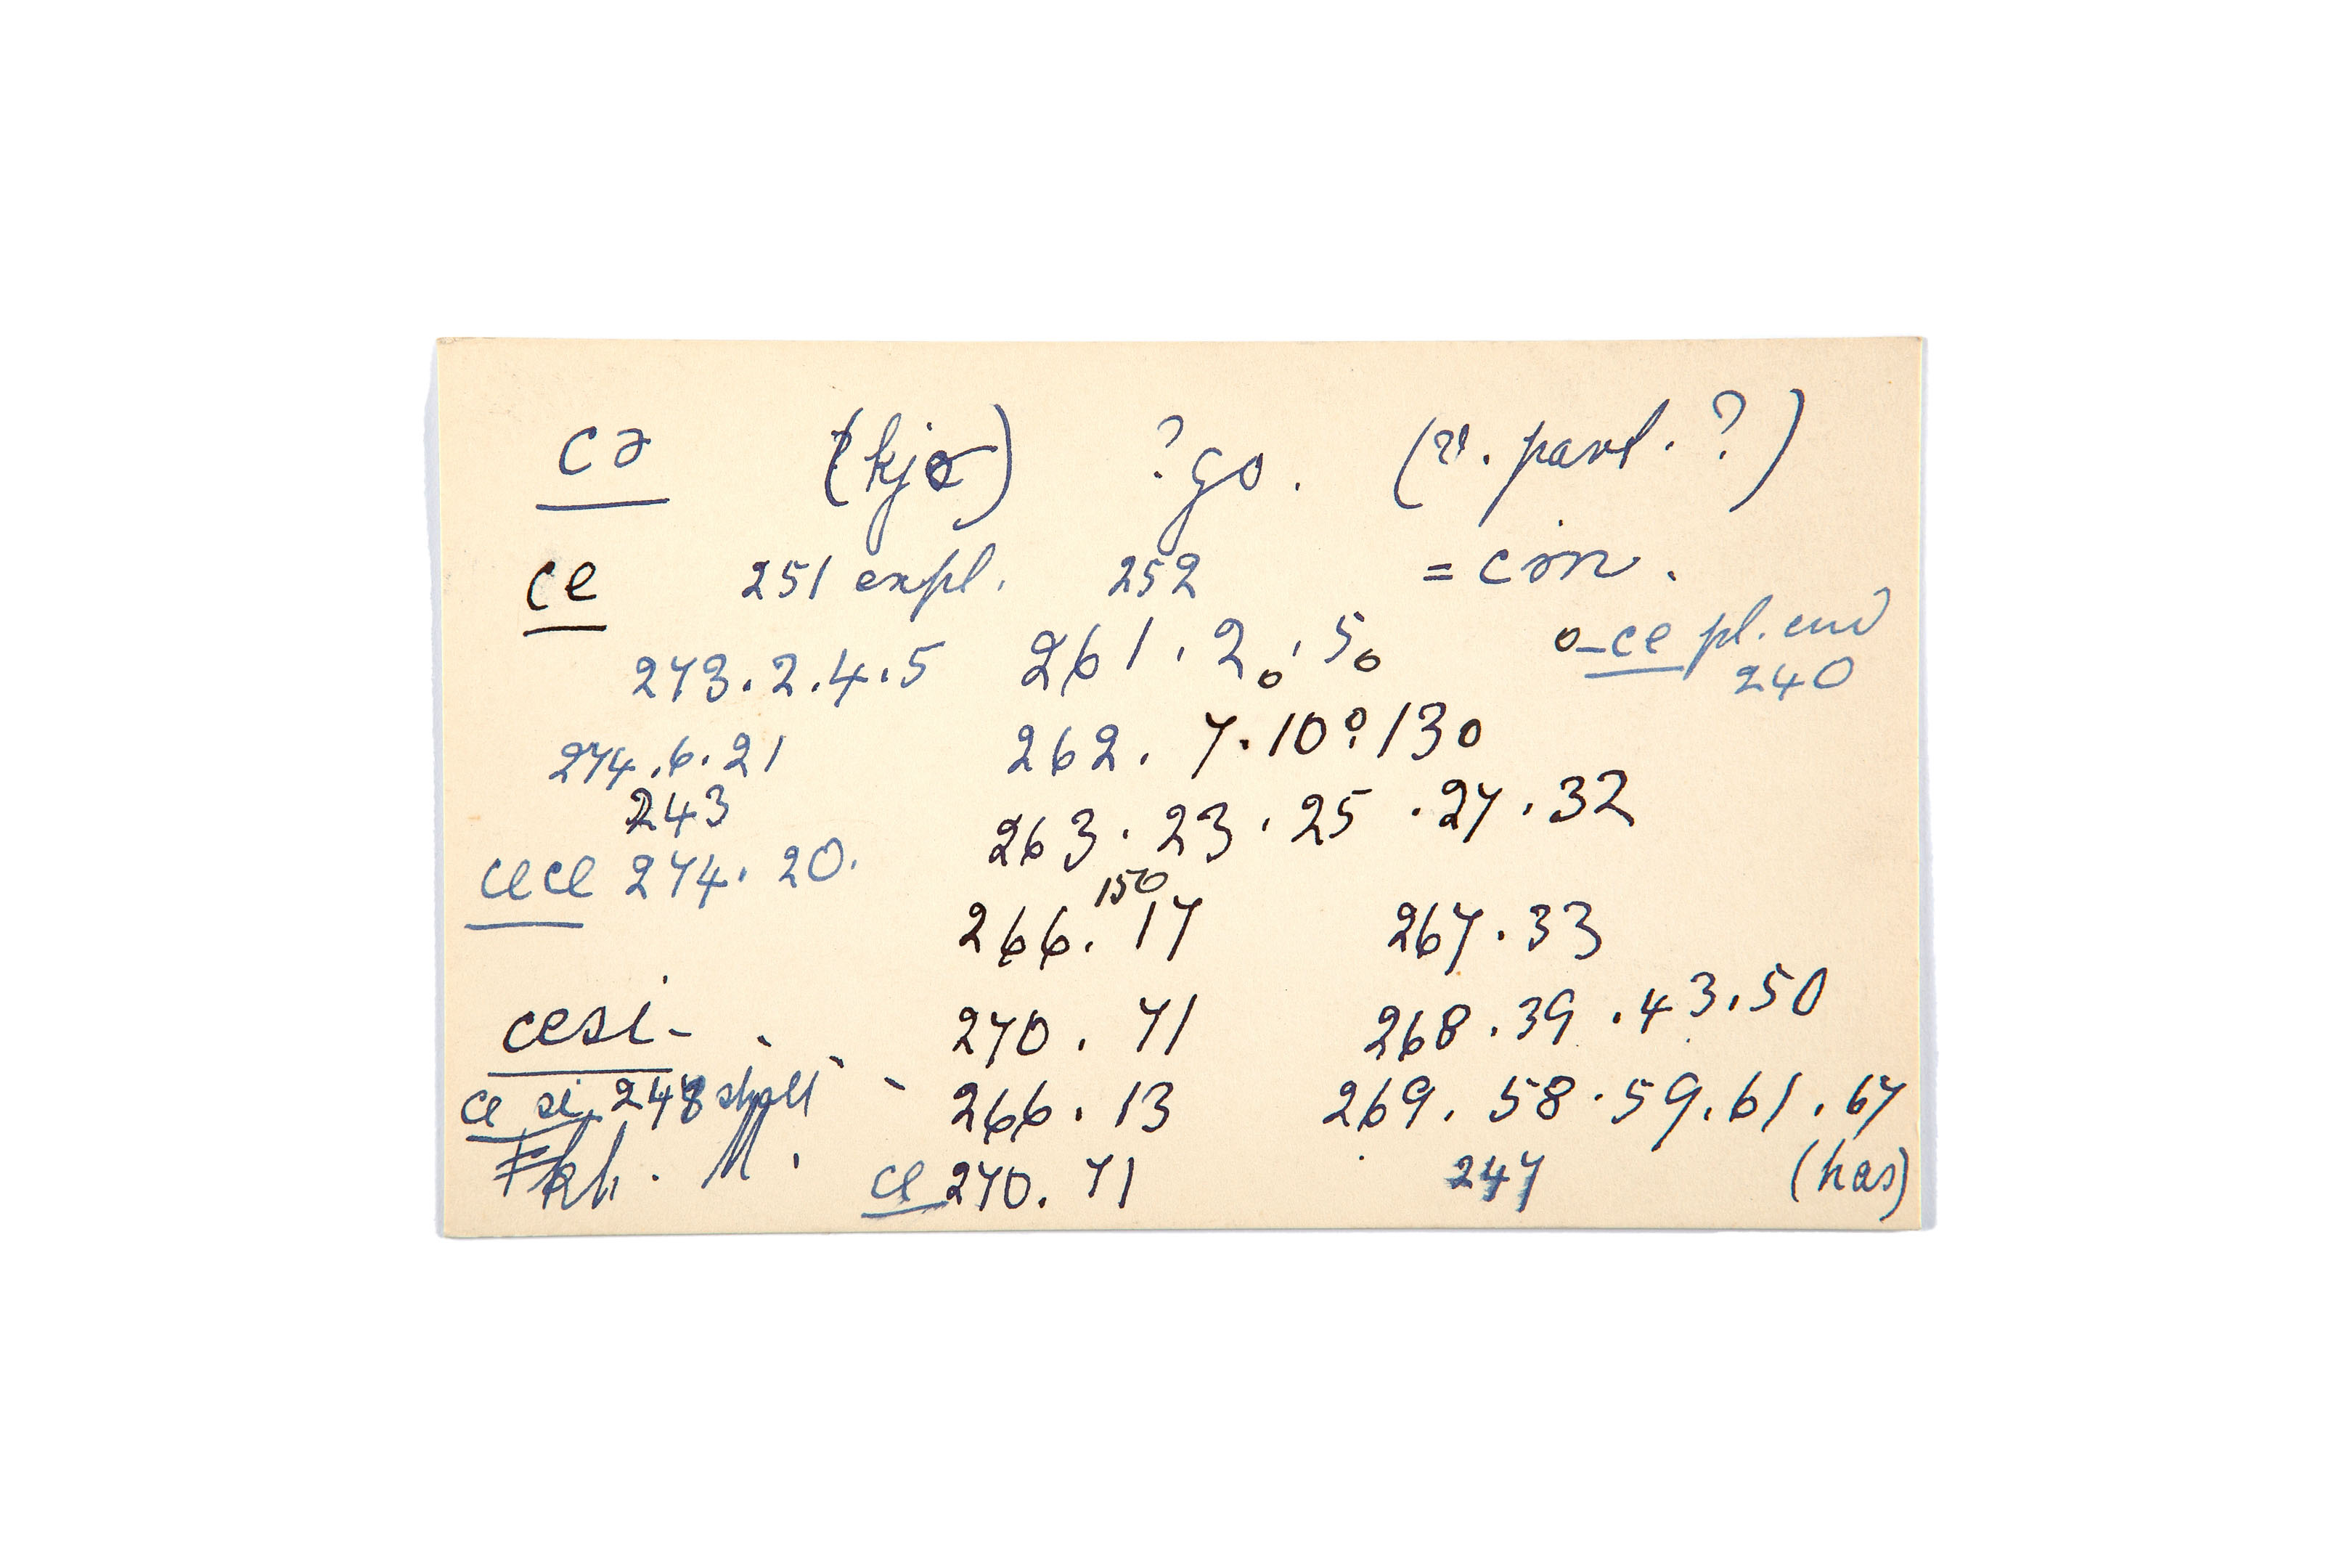 cə (kjə) ?go. (v. pavl.?)
ce 251 expl. 252 = cin.
273.2.4.5 261.2o.5o o-ce pl. end
240
274.6.21 262.7.10o.13o
243 263.23.25.27.32
cece 274.20.
15o
266.17 267.33
cesi- 270.71 268.39.43.50
ce si 248 266.13 269.58.59.61.67
M. ce 270.71 247 (has)